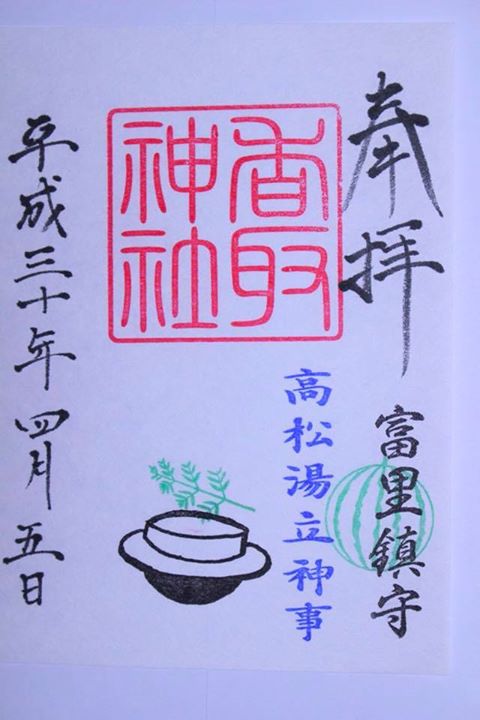 奉拝
富里鎮守
香取
神社
高松湯立神事
平成三十年四月五日